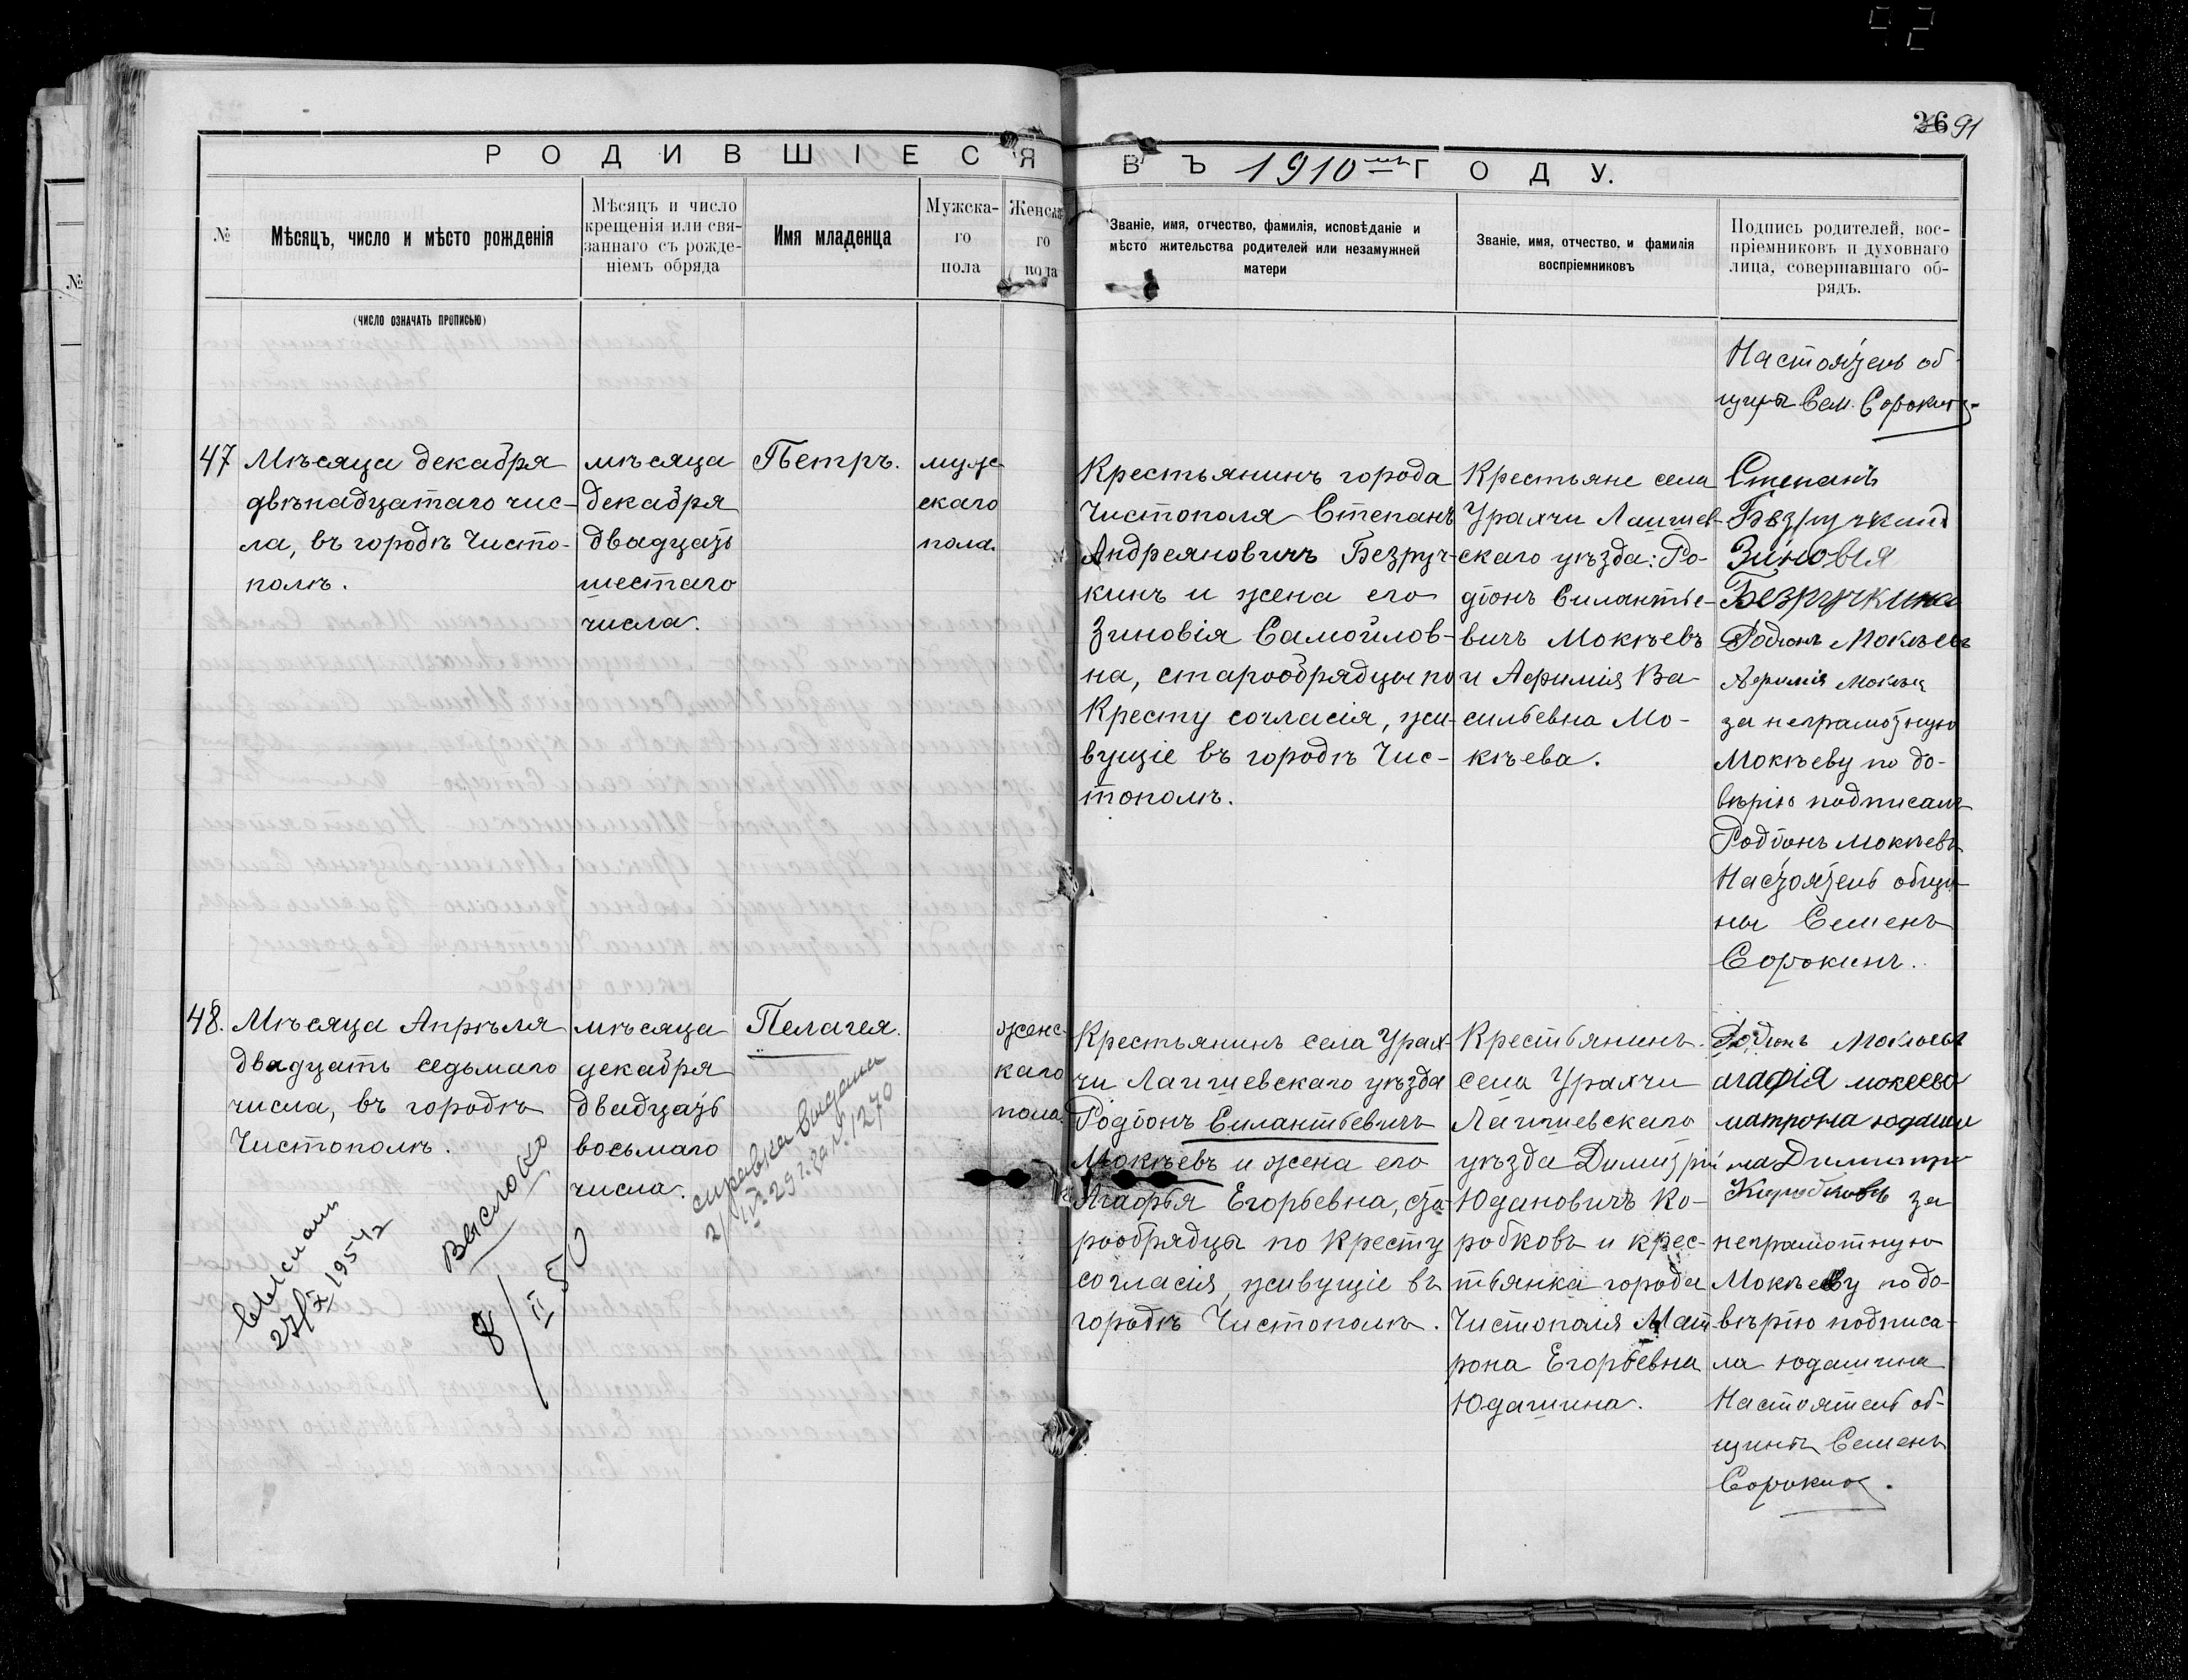 26 91
РОДИВШІЕСЯ ВЪ 1910 ГОДУ.
№
№
Мѣсяцъ, число и мѣсто рожденія
Мѣсяцъ и число
крещенія или свя-
заннаго съ рожде-
ніемъ обряда
Имя младенца
Мужска-
го
пола
Женска
го
пола
Званіе, имя, отчество, фамилія, исповѣданіе и
мѣсто жительства родителей или незамужней
матери
Званіе, имя, отчество, и фамилія
воспріемниковъ
Подпись родителей, вос-
пріемниковъ и духовнаго
лица, совершавшаго об-
рядъ.
(ЧИСЛО ОЗНАЧАТЬ ПРОПИСЬЮ)
Настоятель об
щины Сем. Сорокинъ
47
Мѣсяца декабря
двѣнадцатаго чис-
ла, въ городѣ Чисто-
полѣ.
мѣсяца
декабря
двадцать
шестаго
числа.
Петръ.
муж-
скаго
пола.
Крестьянинъ города
Чистополя Степанъ
Андреяновичъ Безруч-
кинъ и жена его
Зиновія Самойлов-
на, старообрядцы по
Кресту согласія, жи-
вущіе въ городѣ Чис-
тополѣ.
Крестьяне села
Урахчи Лаишев-
скаго уѣзда: Ро-
діонъ Силантье-
вичъ Мокѣевъ
и Афимія Ва-
сильевна Мо-
кѣева.
Степанъ
Безручкинъ
Зиновія
Безручкина
Родіонъ Мокѣевъ
Афимія
за неграмотную
Мокѣеву по до-
вѣрію подписалъ
Родіонъ Мокѣевъ
Настоятель общи-
ны Семенъ
Сорокинъ.
48.
Мѣсяца Апрѣля
двадцать седьмаго
числа, въ городѣ
Чистополѣ.
мѣсяца
декабря
двадцать
восьмаго
числа.
Пелагея.
женс-
каго
пола.
Крестьянинъ села Урах-
чи Лаишевскаго уѣзда
Родіонъ Силантьевичъ
Мокѣевъ и жена его
Агафья Егорьевна, ста-
рообрядцы по Кресту
согласія, живущіе въ
городѣ Чистополѣ.
Крестьянинъ
села Урахчи
Лаишевскаго
уѣзда Димитрій
Юдановичъ Ко-
робковъ и крес-
тьянка города
Чистополя Мат-
рона Егорьевна
Юдашина.
Родіонъ Мокѣевъ
агафія мокеева
матрона юдаши
на Димитри
Коробковъ за
неграмотную
Мокѣеву по до-
вѣрію подписа-
ла юдашина
Настоятель об-
щины Семенъ
Сорокинъ.
справка выдана
2/IV 29 г. за № 1270
Выслано
8/II 50
27/X 1954 г